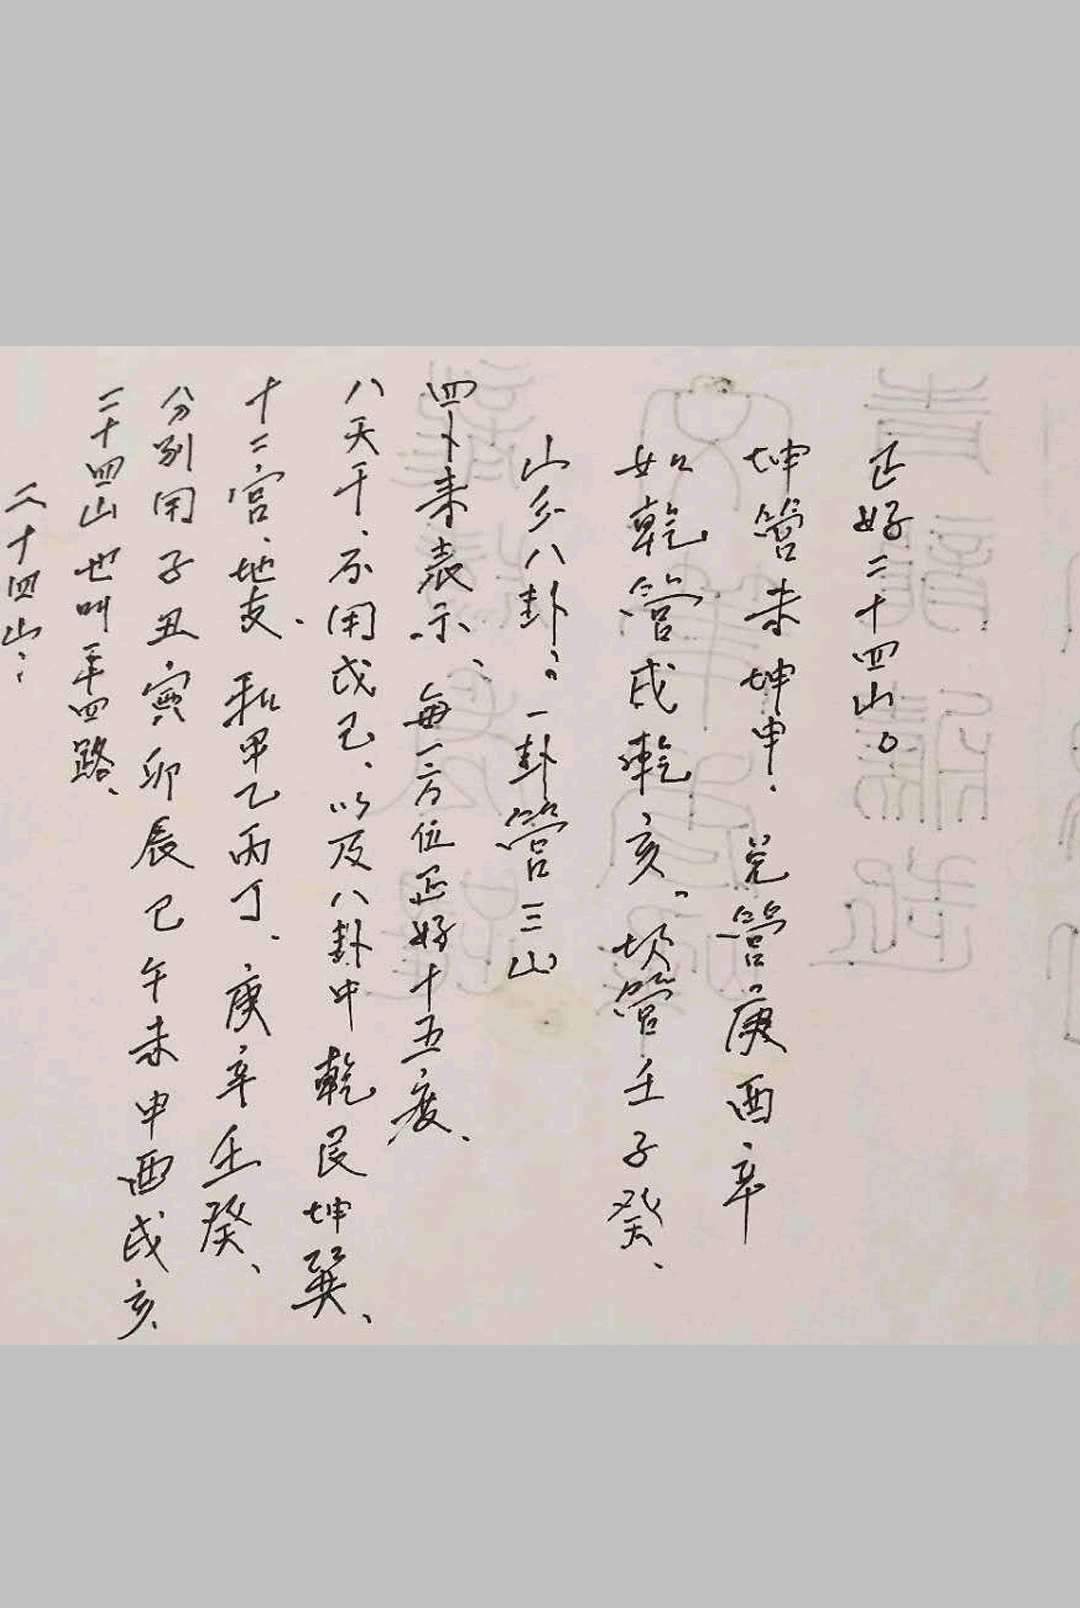 二十四山：
二十四山也叫二十四路、
分别用子丑寅卯辰巳午未申酉戌亥
十二宫、地支、和甲乙丙丁、庚辛壬癸、
八天干、不用戊己、以及八卦中乾艮坤巽、
四卜来表示、每一方位正好十五度、
山分八卦。一卦管三山
如乾管戌乾亥。坎管壬子癸、
坤管未坤申、兑管庚酉辛
正好二十四山。